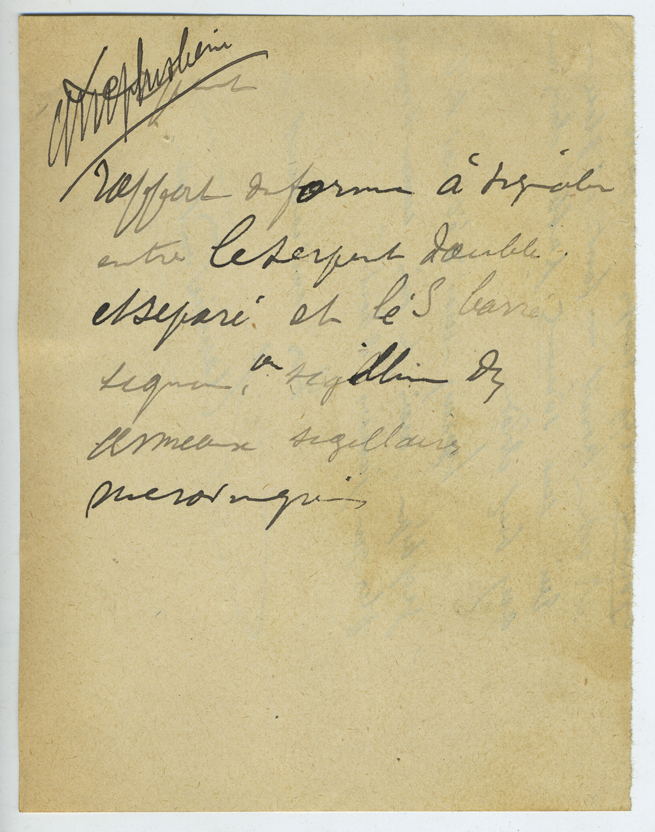 rapport de forme à signaler
entre le serpent double
et séparé et le S barré
signum, ou sigillum des
anneaux sigillaires
merovingiens